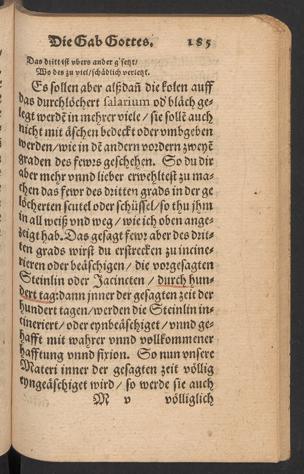 Die Gab Gottes. 185
Das dritt ist vbers ander g'setzt/
Wo des zu viel/schädlich verletzt.
Es sollen aber alßdañ die kolen auff
das durchlöchert salarium od' bläch ge-
legt werdẽ in mehrer viele / sie sollẽ auch
nicht mit äschen bedeckt oder vmbgeben
werden/wie in dẽ andern vordern zweyẽ
graden des fewrs geschehen. So du dir
aber mehr vnnd lieber erwehltest zu ma-
chen das fewr des dritten grads in der ge
löcherten scutel oder schüssel/so thu jhm
in all weiß vnd weg / wie ich oben ange-
zeigt hab. Das gesagt fewr aber des drit-
ten grads wirst du erstrecken zu incine-
rieren oder beäschigen / die vorgesagten
Steinlin oder Jacineten / durch hun-
dert tag: dann jnner der gesagten zeit der
hundert tagen/werden die Steinlin in-
cineriert/ oder eynbeäschiget / vnnd ge-
hafft mit wahrer vnnd vollkommener
hafftung vnnd fixion. So nun vnsere
Materi inner der gesagten zeit völlig
eyngeäschiget wird / so werde sie auch
M v völliglich